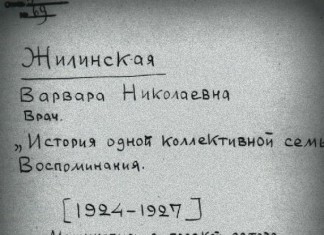 69
Жилинская
Варвара Николаевна
Врач.
„История одной коллективной семь
Воспоминания.
[1924-1927]